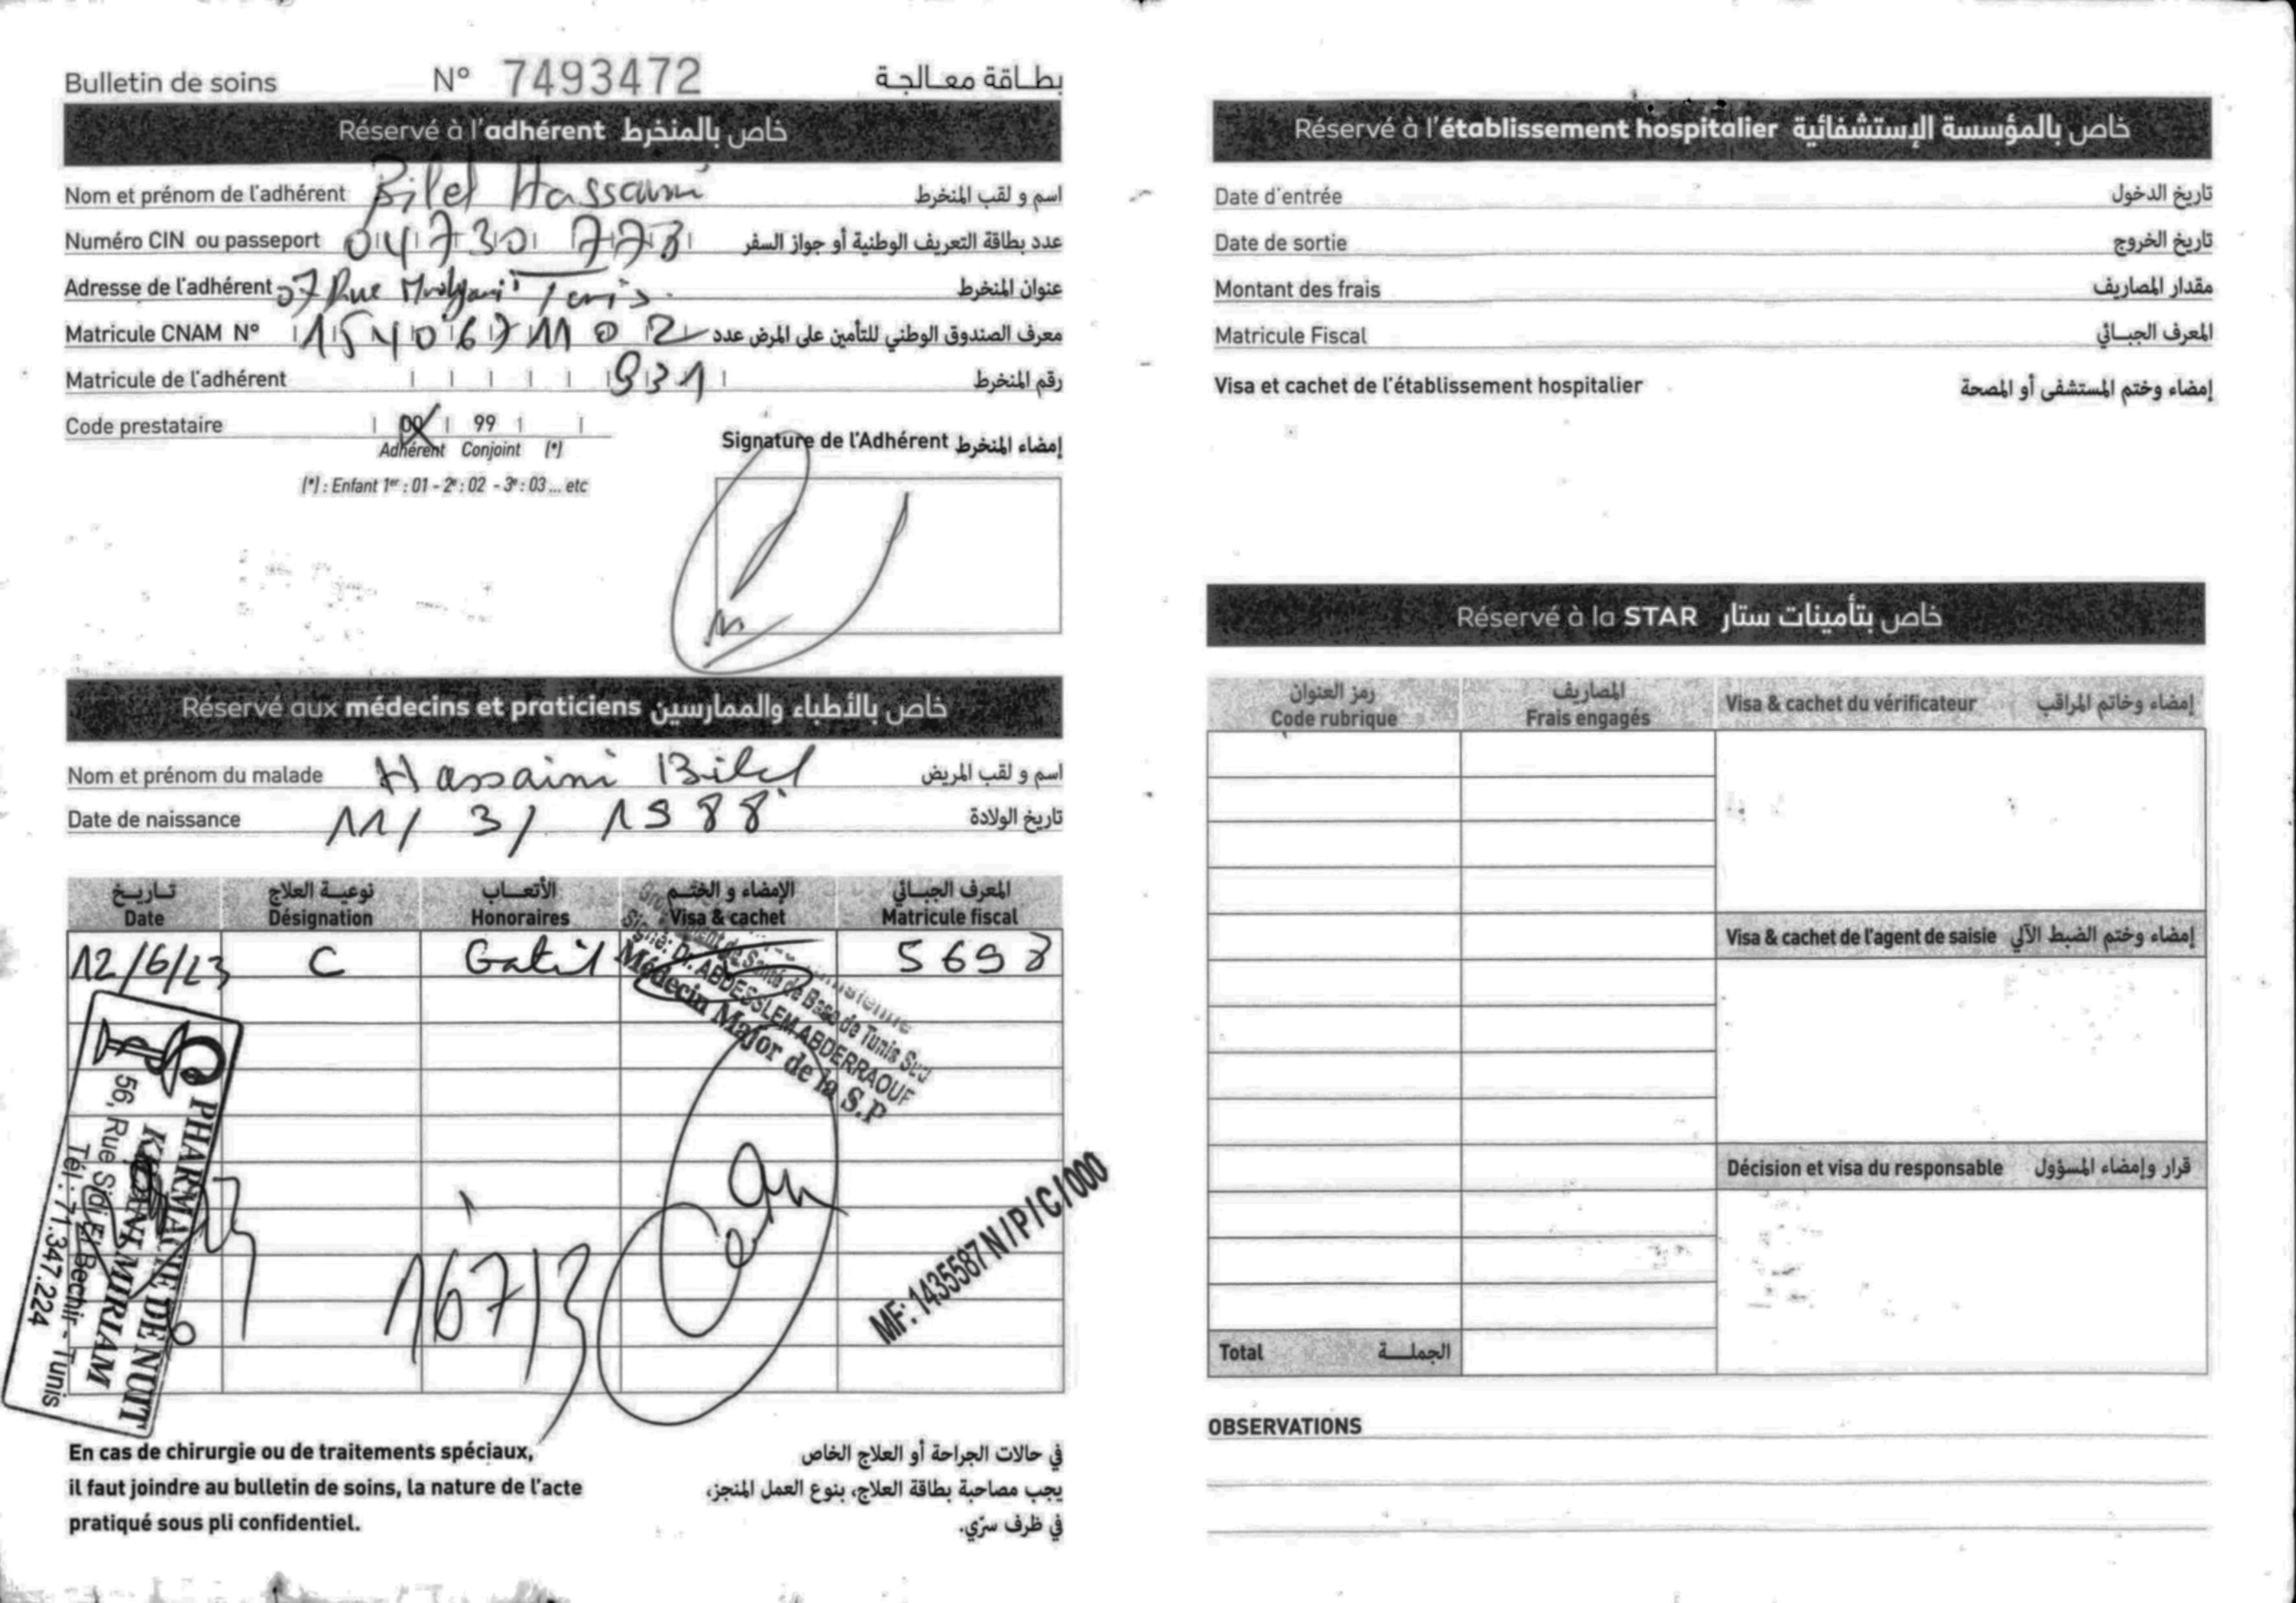 Bulletin de soins N° 7493472 بطاقة معالجة
Réservé à l'adhérent خاص بالمنخرط
Nom et prénom de l'adhérent Bilel Hassaini اسم و لقب المنخرط
Numéro CIN ou passeport 04730 773 عدد بطاقة التعريف الوطنية أو جواز السفر
Adresse de l'adhérent 07 Rue Tunis. عنوان المنخرط
Matricule CNAM N° معرف الصندوق الوطني للتأمين على المرض عدد
Matricule de l'adhérent 931 رقم المنخرط
Code prestataire 00 99
Adhérent Conjoint (*)
(*) : Enfant 1er : 01 - 2e : 02 - 3e : 03 ... etc
Signature de l'Adhérent إمضاء المنخرط
Réservé aux médecins et praticiens خاص بالأطباء والممارسين
Nom et prénom du malade Hassaini Bilel اسم و لقب المريض
Date de naissance 11/ 3/ 1988 تاريخ الولادة
تـاريـخ نوعيـة العلاج الأتعـاب الإمضاء و الختـم المعرف الجبـائي
Date Désignation Honoraires Visa & cachet Matricule fiscal
12/6/23 C 5698
de Santé de Base de Tunis Sud
Signé: Dr. ABDESSLEM ABDERRAOUF
Médecin Major de la S.P
PHARMACIE DE NUIT
MURIAM
56, Rue Sidi El Bechir - Tunis
Tél : 71.347.224
MF: 1435587 N/P/C/000
En cas de chirurgie ou de traitements spéciaux,
il faut joindre au bulletin de soins, la nature de l'acte
pratiqué sous pli confidentiel.
في حالات الجراحة أو العلاج الخاص
يجب مصاحبة بطاقة العلاج، بنوع العمل المنجز،
في ظرف سرّي.
Réservé à l'établissement hospitalier خاص بالمؤسسة الإستشفائية
Date d'entrée تاريخ الدخول
Date de sortie تاريخ الخروج
Montant des frais مقدار المصاريف
Matricule Fiscal المعرف الجبـائي
Visa et cachet de l'établissement hospitalier إمضاء وختم المستشفى أو المصحة
Réservé à la STAR خاص بتأمينات ستار
رمز العنوان المصاريف
Code rubrique Frais engagés Visa & cachet du vérificateur إمضاء وخاتم المراقب
Visa & cachet de l'agent de saisie إمضاء وختم الضبط الآلي
Décision et visa du responsable قرار وإمضاء المسؤول
Total الجملـة
OBSERVATIONS